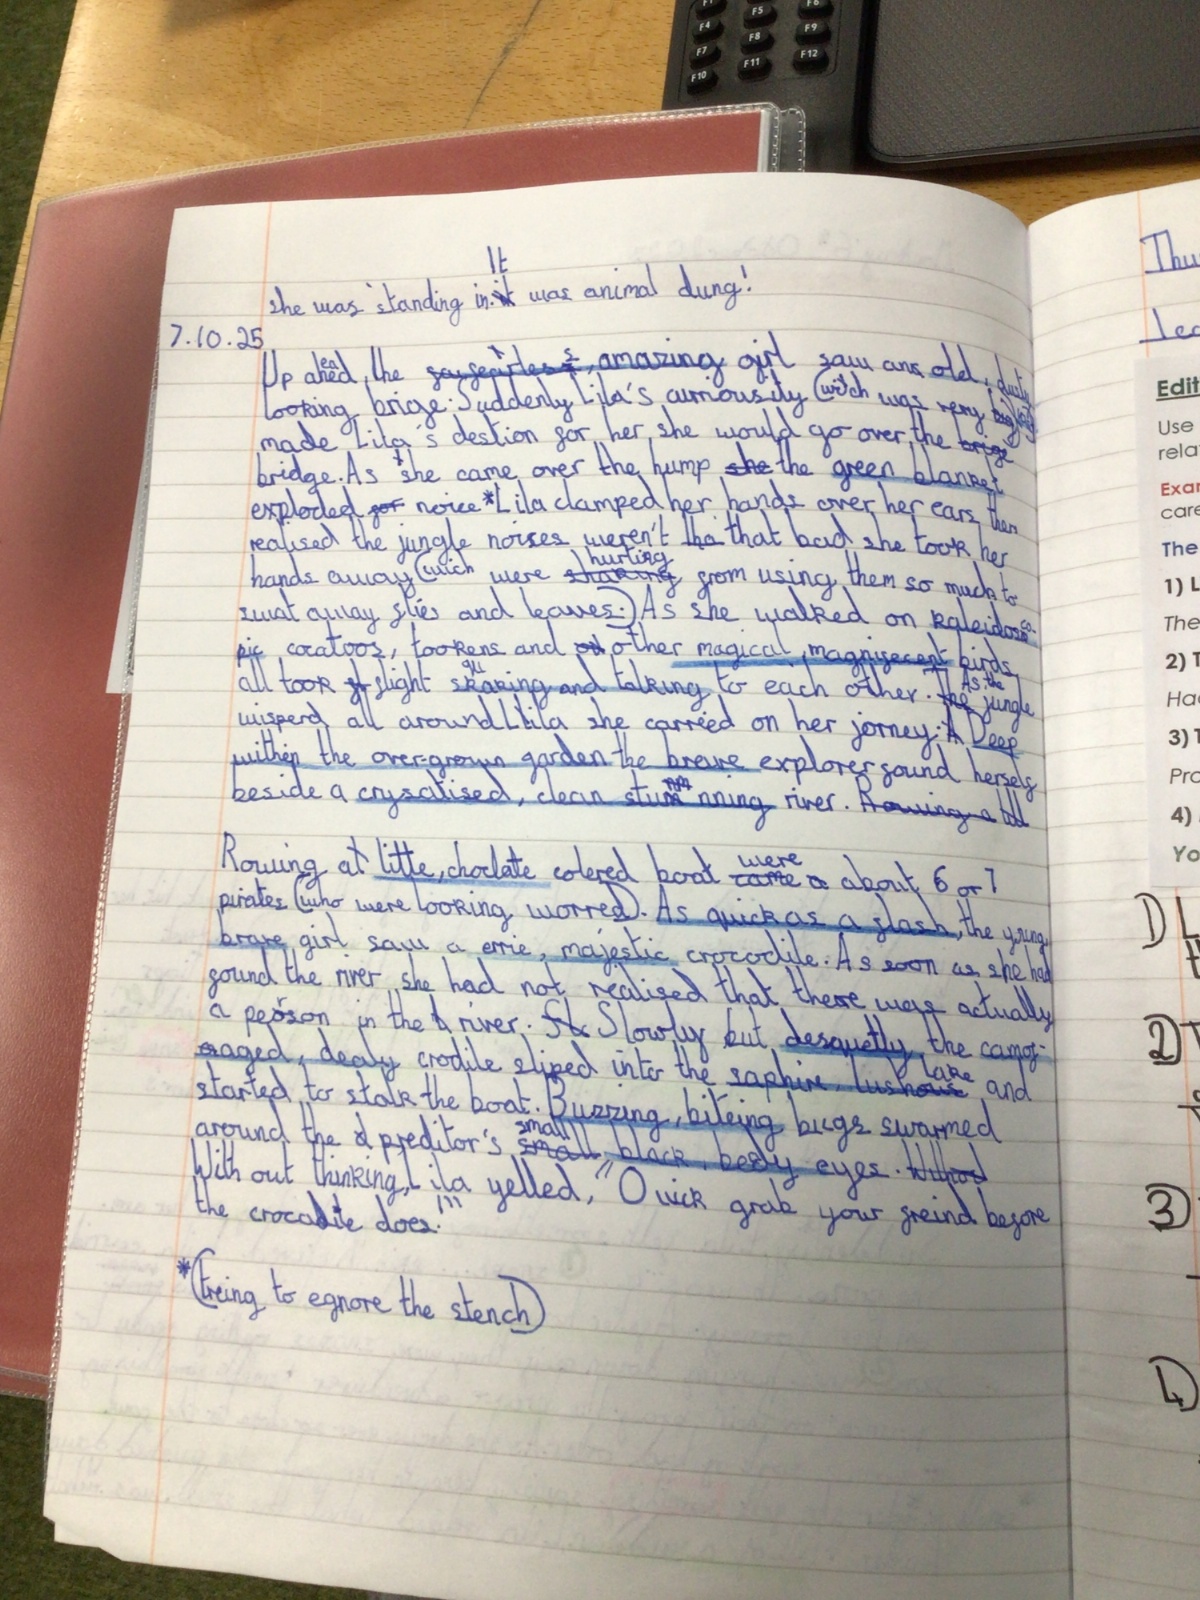 F1
F5
F6
F4
F8
F9
F7
F11
F12
F10
It
she was standing in. it was animal dung!
7.10.25
Up ahead, the amazing girl saw an old, dusty
looking brige. Suddenly Lila's curriousity (witch was very big)
made Lila's destion for her, she would go over the brige
bridge. As she came over the hump she the green blanket
exploded for noice * Lila clamped her hands over her ears, then
realised the jungle noises weren't tha that bad she took her
hurting
hands away (wich were from using them so much to
swat away flies and leaves.) As she walked on kaleidosco-
pic cocatoos, tookens and other magical, magnifecent birds
all took flight sqarking and talking to each other. The As the jungle
wisperd all around Lila she carried on her jorney. A Deep
within the over-grown garden the brave explorer found herself
beside a crysatised, clean stunning river. Rowing a
Rowing at little, choclate colered boat were came a about 6 or 7
pirates (who were looking worred). As quick as a flash, the young
brave girl saw a errie, majestic crocodile. As soon as she had
found the river, she had not realised that there was actually
a person in the river. Slowly but desquetly, the camof-
aged, dealy crodile sliped into the saphire, lushous lake and
started to stalk the boat. Buzzing, biteing bugs swarmed
around the preditor's small small, black, beedy eyes. Without
With out thinking, Lila yelled, "Quick grab your freind before
the crocadile does!"
*(treing to egnore the stench)
Thu
Lea
Edit
Use
relat
Exar
care
The
1) L
The
2) T
Had
3) T
Pro
4)
Yo
1) L
2)
3)
4)